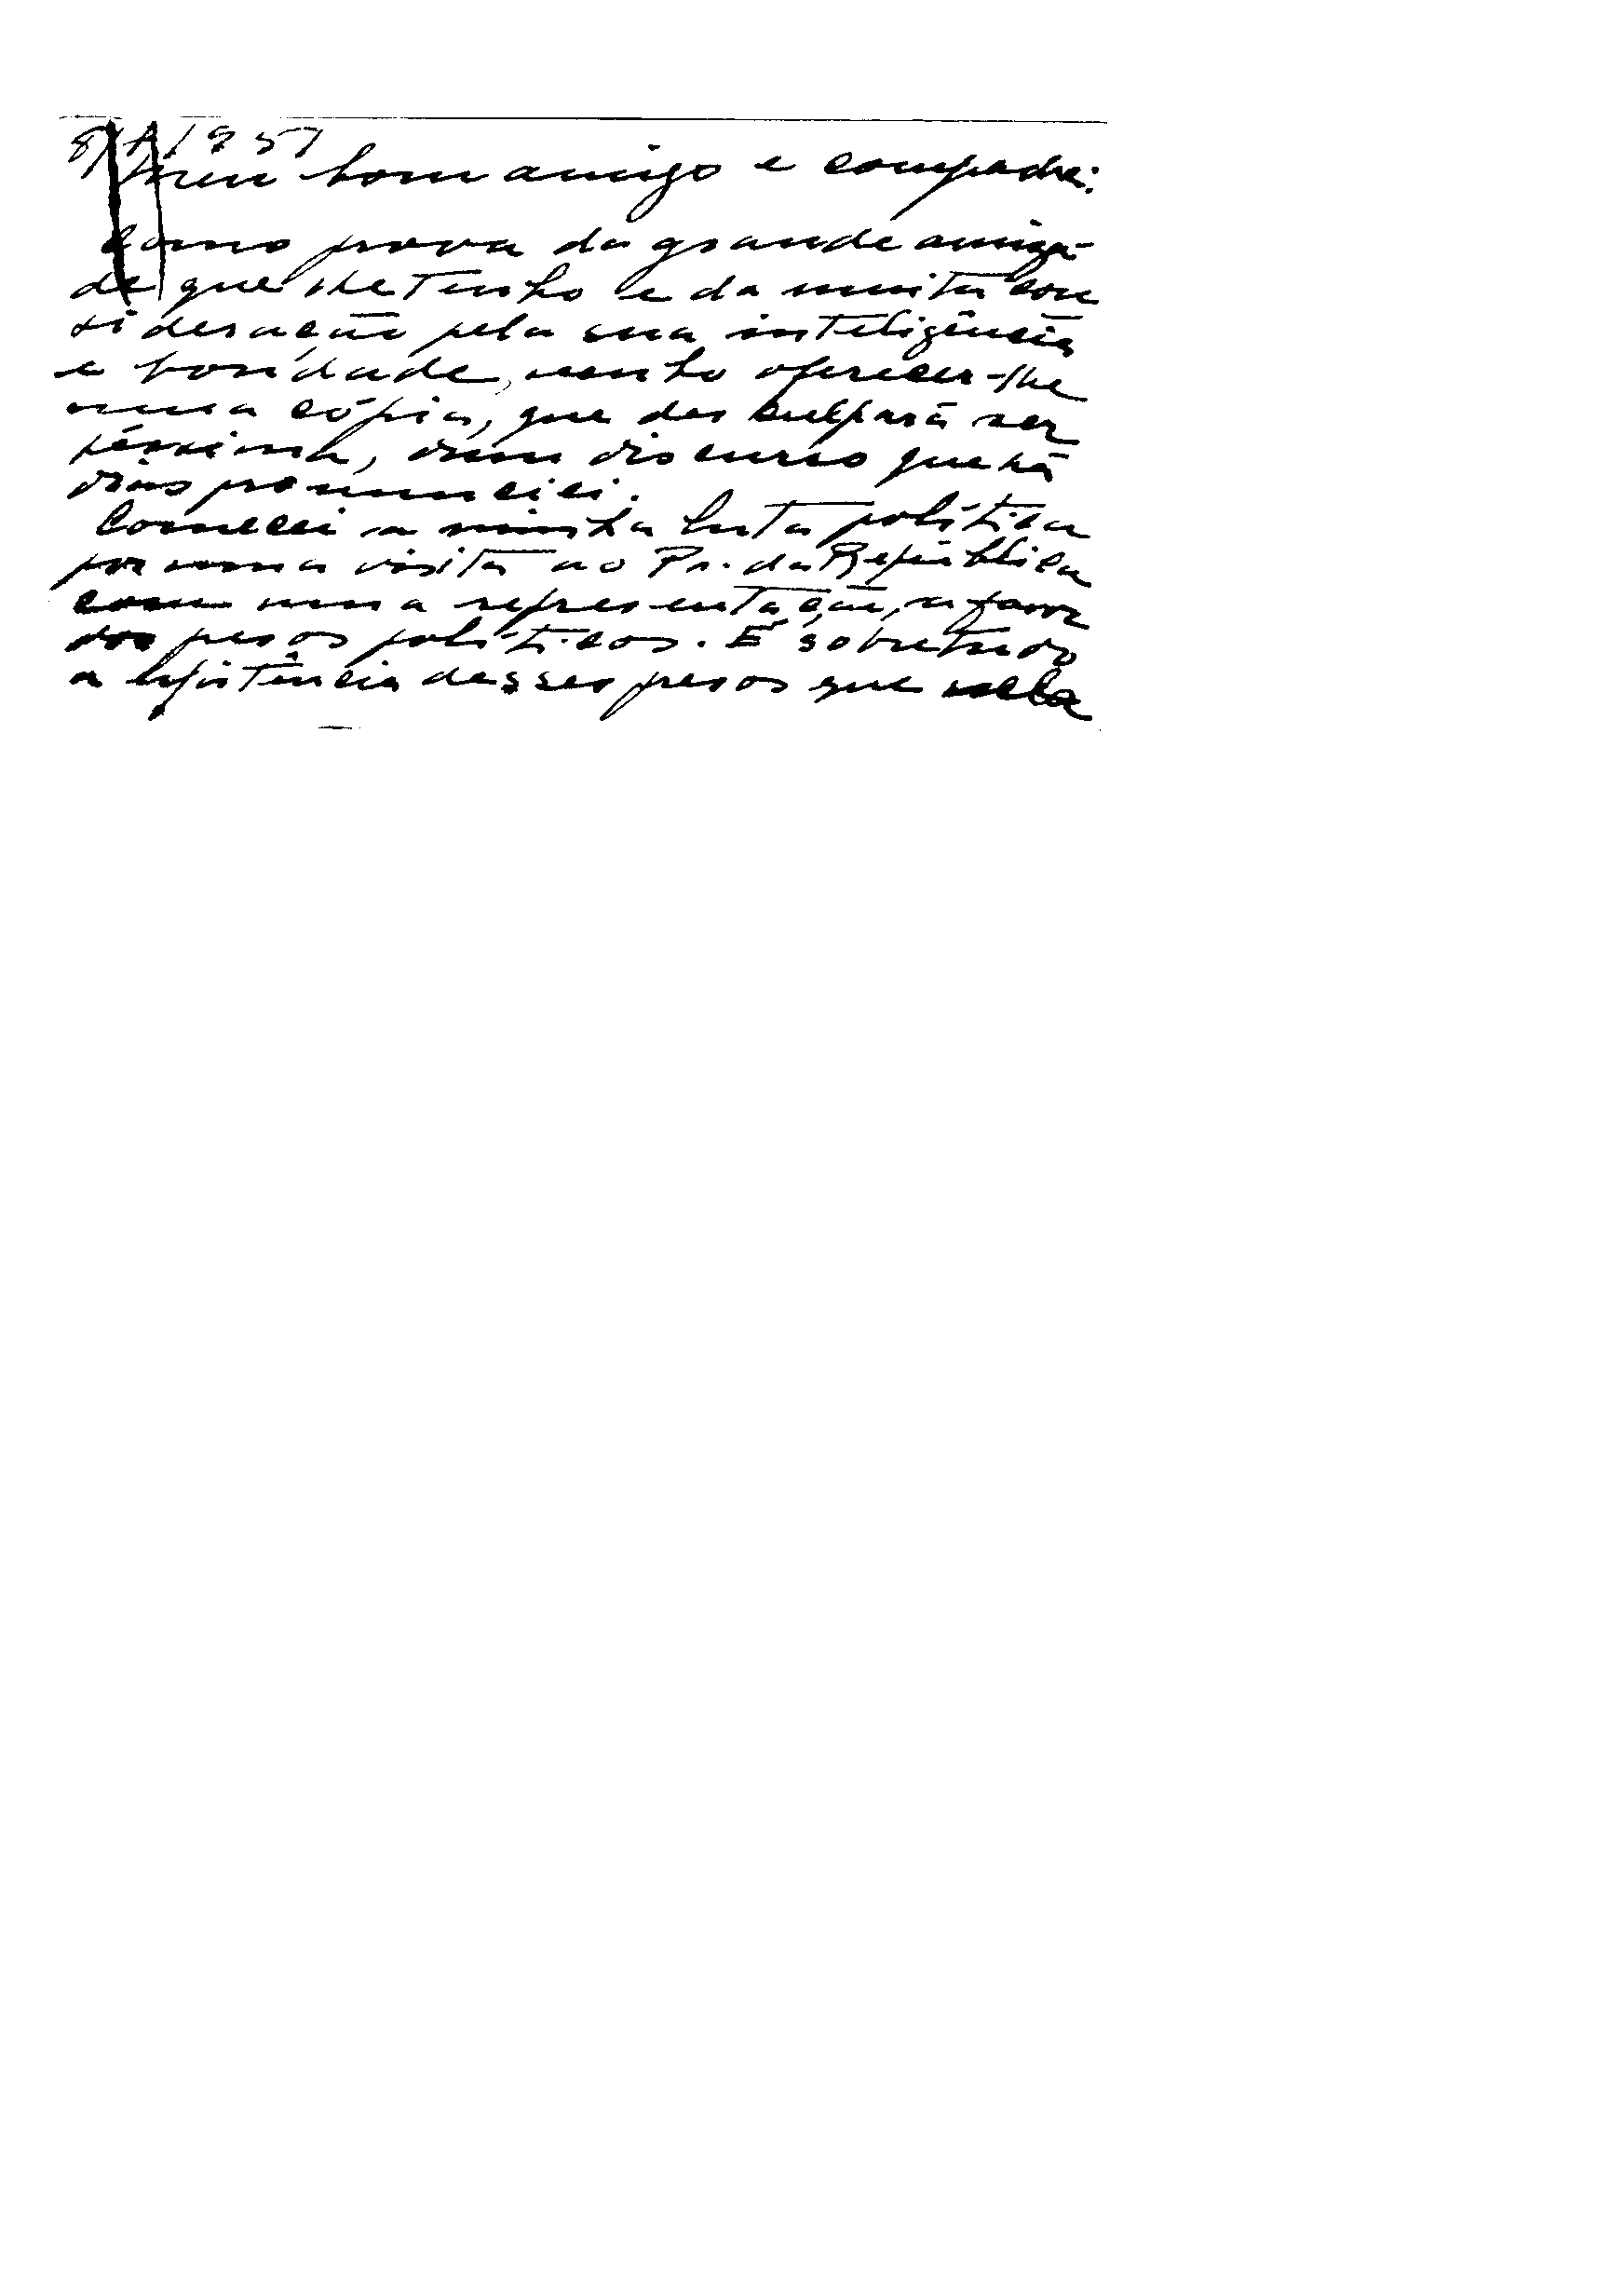 1957
Meu bom amigo e compadre:
Como prova da grande amiza-
de que lhe tenho e da muita con
sideração pela sua inteligência
e bondade, venho oferecer-lhe
uma cópia, que desculpará ser
péssima, dum discurso que há
dias pronunciei.
Comecei a minha luta política
por uma visita ao Pr. da República
com uma representação, a favor
dos presos políticos. É sobretudo
a existência desses presos que